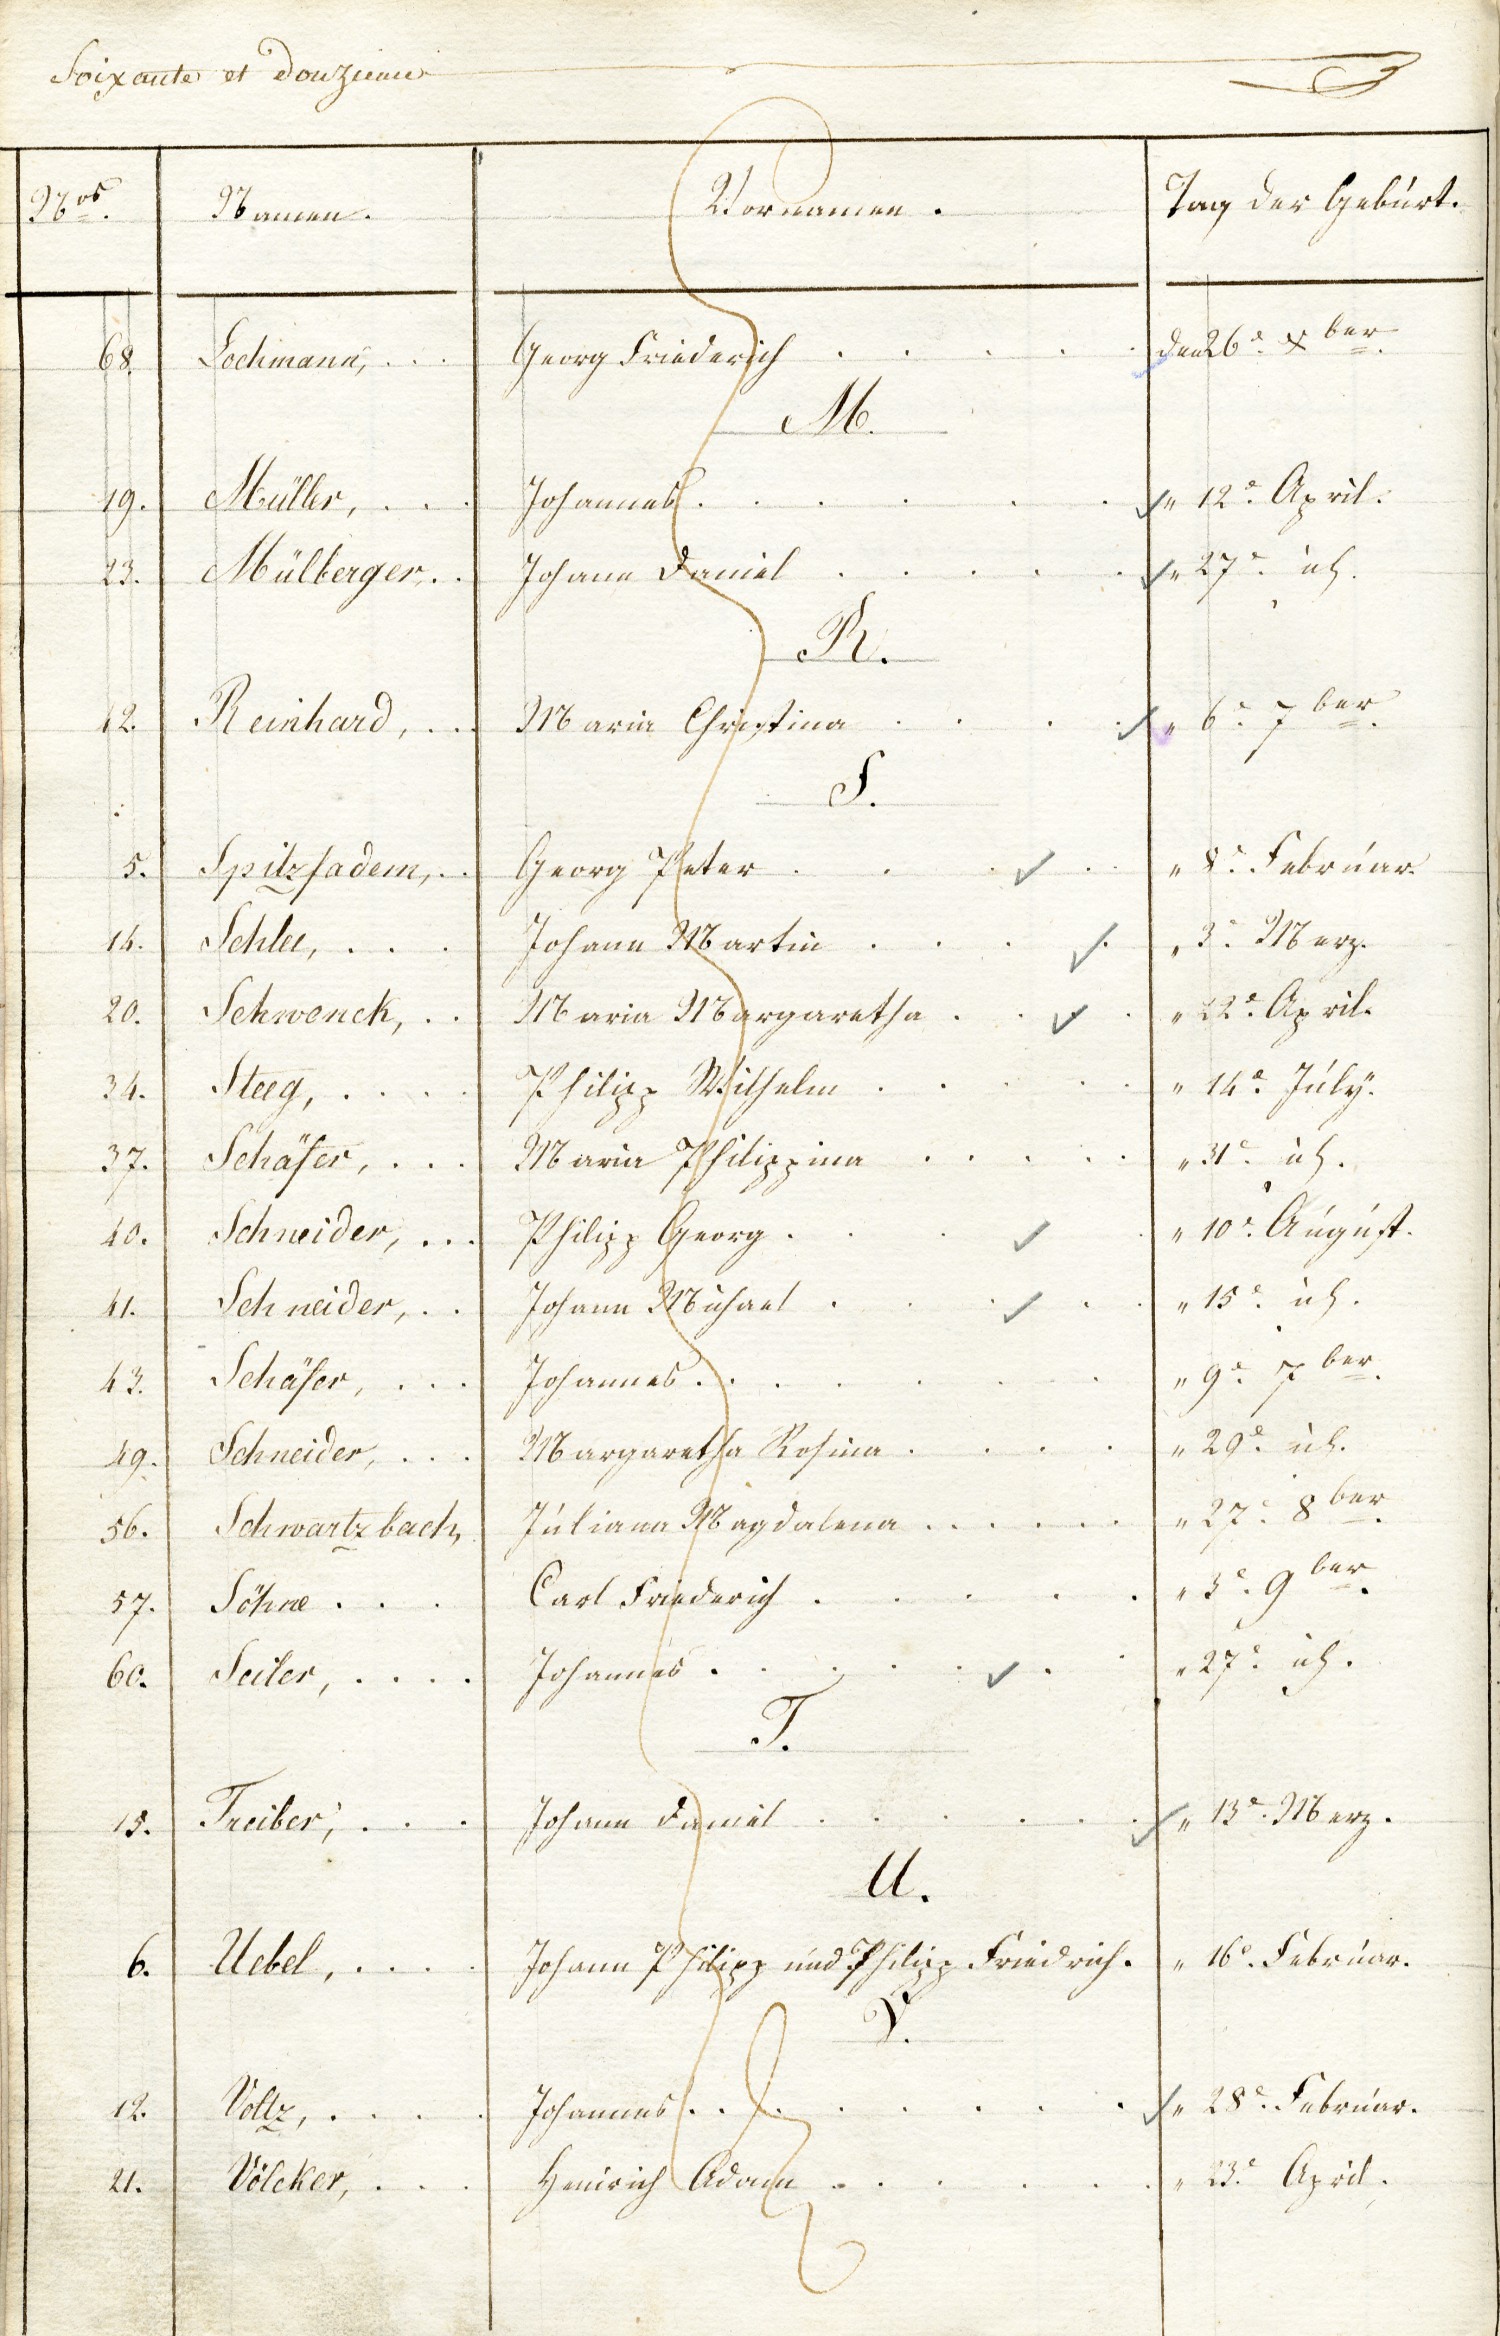 Soixante et douzieme
Nos. Namen. Vornamen. Tag der Geburt.
68. Lochmann, . . . Georg Friederich . . . . . den 26e. Xber.
M.
19. Müller, . . . Johannes . . . . . . „ 12e. April.
23. Mülberger, . . Johann Daniel . . . . . „ 27e. id.
R.
42. Reinhard, . . . Maria Christina . . . . „ 6e. 7ber.
S.
5. Spitzfadem, . . Georg Peter . . . . „ 8e. Februar.
14. Schlee, . . . Johann Martin . . . . „ 3e. Merz.
20. Schwenck, . . Maria Margaretha . . . . „ 22e. April.
34. Steeg, . . . . Philipp Wilhelm . . . . . „ 14e. July.
37. Schäfer, . . . Maria Philippina . . . . . „ 31e. id.
40. Schneider, . . . Philipp Georg . . . . „ 10e. August.
41. Schneider, . . Johann Michael . . . . . „ 15e. id.
43. Schäfer, . . . Johannes . . . . . . . „ 9e. 7ber.
49. Schneider, . . . Margaretha Rosina . . . . „ 29e. id.
56. Schwartzbach, Juliana Magdalena . . . . . . „ 27e. 8ber.
57. Söhne . . . Carl Friederich . . . . . „ 3e. 9ber.
60. Seiler, . . . . Johannes . . . . . . . „ 27e. id.
T.
15. Treiber, . . . Johann Daniel . . . . . . „ 13e. Merz.
U.
6. Uebel, . . . . Johann Philipp und Philipp Friedrich. „ 16e. Februar.
V.
12. Voltz, . . . . Johannes . . . . . . . . „ 28e. Februar.
21. Völcker, . . . Heinrich Adam . . . . . . „ 23e. April.